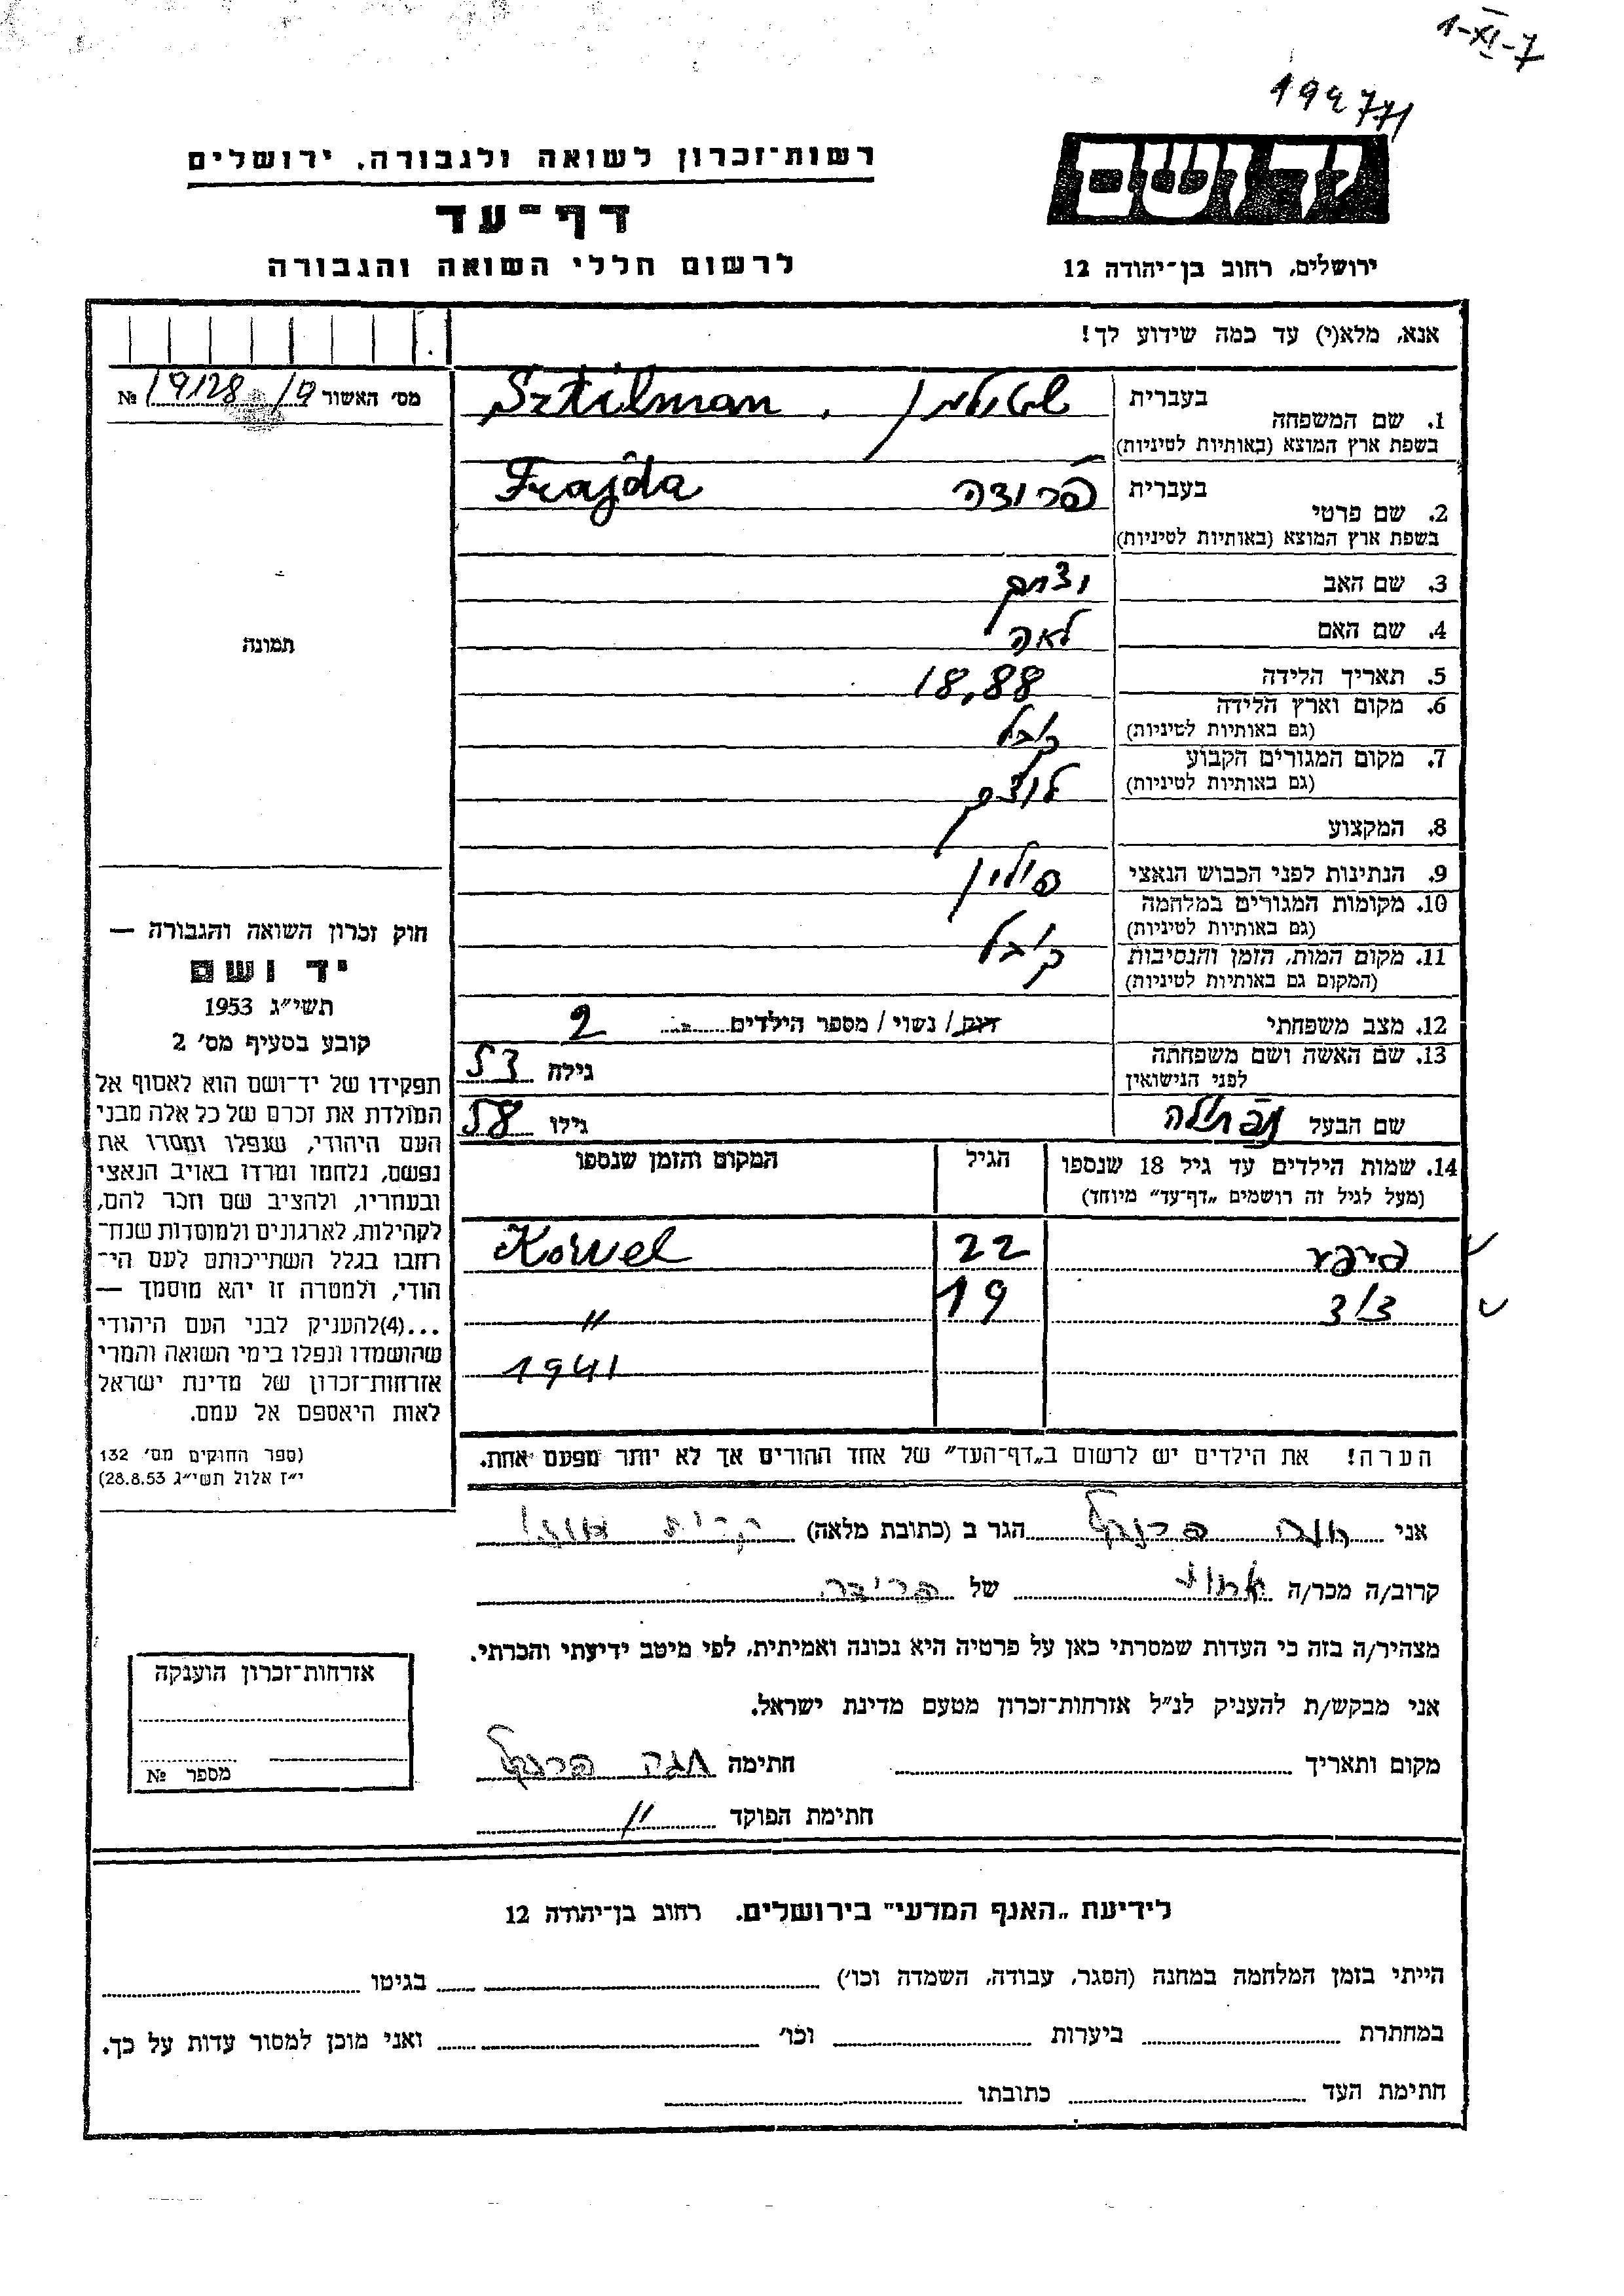 1-XI-7
199771
יד ושם
רשות־זכרון לשואה ולגבורה, ירושלים
דף־עד
לרשום חללי השואה והגבורה
ירושלים, רחוב בן־יהודה 12
אנא, מלא(י) עד כמה שידוע לך!
מס׳ האשור № 19128/א
תמונה
1. שם המשפחה בעברית שטילמן Sztilman
בשפת ארץ המוצא (באותיות לטיניות)
2. שם פרטי בעברית Frajda
בשפת ארץ המוצא (באותיות לטיניות)
3. שם האב יצחק
4. שם האם לאה
5. תאריך הלידה 18,88
6. מקום וארץ הלידה קובל
(גם באותיות לטיניות)
7. מקום המגורים הקבוע לוצק
(גם באותיות לטיניות)
8. המקצוע
9. הנתינות לפני הכבוש הנאצי פולין
10. מקומות המגורים במלחמה
(גם באותיות לטיניות)
11. מקום המות, הזמן והנסיבות קובל
(המקום גם באותיות לטיניות)
12. מצב משפחתי רווק / נשוי / מספר הילדים 2
13. שם האשה ושם משפחתה לפני הנישואין גילה 53
שם הבעל גילו 58
14. שמות הילדים עד גיל 18 שנספו הגיל המקום והזמן שנספו
(מעל לגיל זה רושמים „דף־עד״ מיוחד)
22 Kowel
19 "
1941
הערה! את הילדים יש לרשום ב„דף־העד״ של אחד ההורים אך לא יותר מפעם אחת.
חוק זכרון השואה והגבורה —
יד ושם
תשי״ג 1953
קובע בסעיף מס׳ 2
תפקידו של יד־ושם הוא לאסוף אל
המולדת את זכרם של כל אלה מבני
העם היהודי, שנפלו ומסרו את
נפשם, נלחמו ומרדו באויב הנאצי
ובעוזריו, ולהציב שם וזכר להם,
לקהילות, לארגונים ולמוסדות שנח־
רחבו בגלל השתייכותם לעם הי־
הודי, ולמטרה זו יהא מוסמך —
...(4)להעניק לבני העם היהודי
שהושמדו ונפלו בימי השואה והמרי
אזרחות־זכרון של מדינת ישראל
לאות היאספם אל עמם.
(ספר החוקים מס׳ 132
י״ז אלול תשי״ג 28.8.53)
אני חנה פרנקל הגר ב (כתובת מלאה) קרית אונו
קרוב/ה מכר/ה אחות של פרידה
מצהיר/ה בזה כי העדות שמסרתי כאן על פרטיה היא נכונה ואמיתית, לפי מיטב ידיעתי והכרתי.
אני מבקש/ת להעניק לנ״ל אזרחות־זכרון מטעם מדינת ישראל.
מקום ותאריך חתימה חנה פרנקל
חתימת הפוקד "
אזרחות־זכרון הוענקה
מספר №
לידיעת „האגף המדעי״ בירושלים. רחוב בן־יהודה 12
הייתי בזמן המלחמה במחנה (הסגר, עבודה, השמדה וכו׳) בגיטו
במחתרת ביערות וכו׳ ואני מוכן למסור עדות על כך.
חתימת העד כתובתו